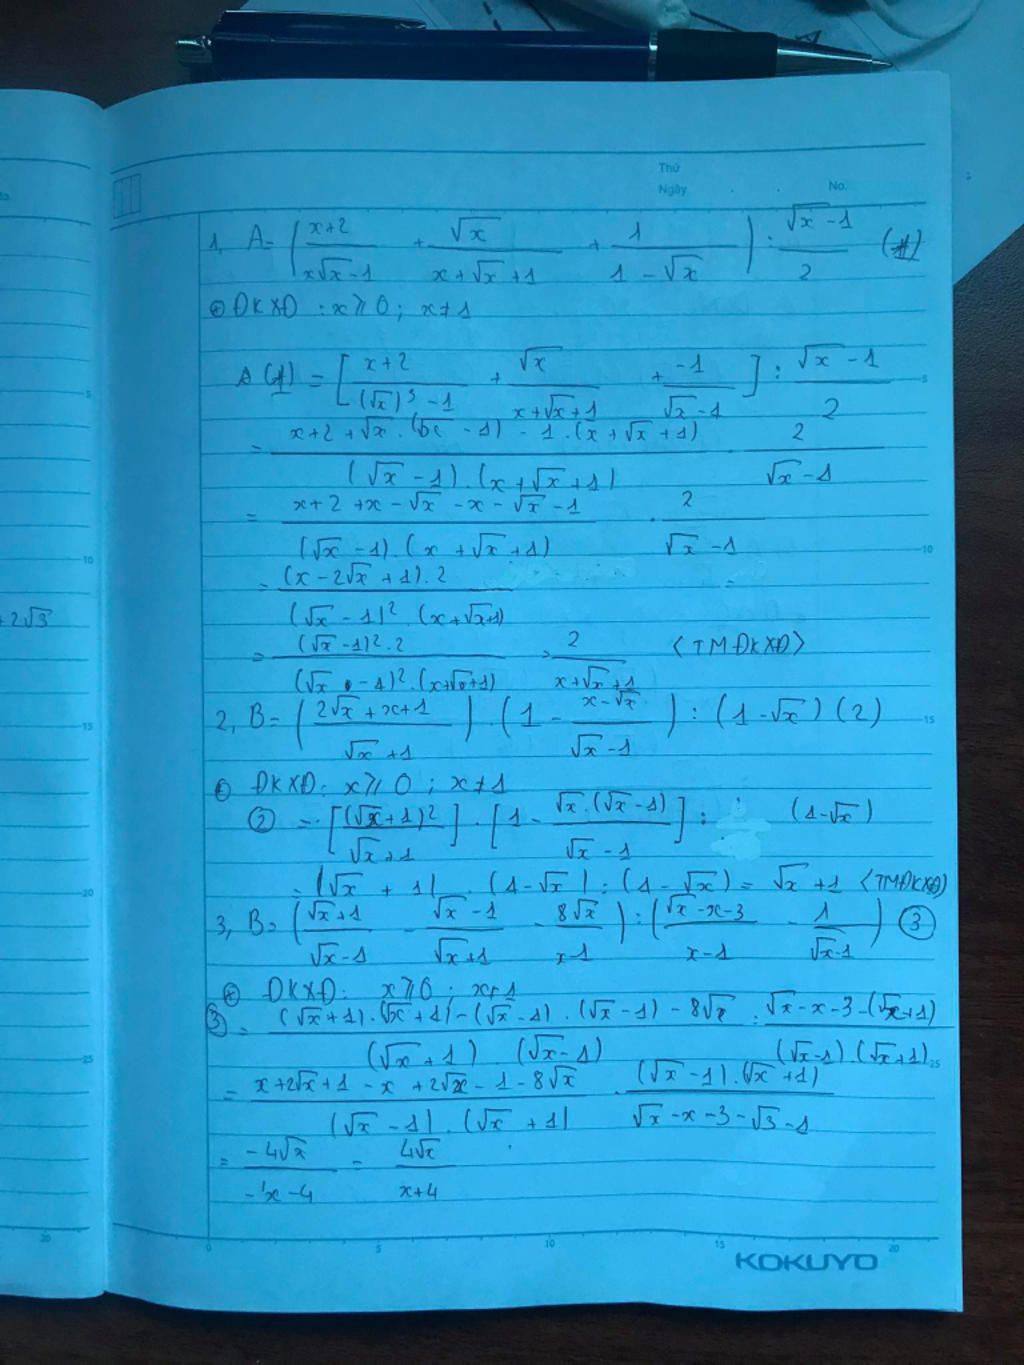 Thứ
Ngày No.
1, A = (x+2 / x√x - 1 + √x / x + √x + 1 + 1 / 1 - √x) : √x - 1 / 2 (1)
⊛ ĐKXĐ : x ⩾ 0 ; x ≠ 1
(1) = [x+2 / (√x)³ - 1 + √x / x+√x+1 + -1 / √x - 1] : √x - 1 / 2
= x+2 + √x . (√x - 1) - 1 . (x + √x + 1) / (√x - 1) . (x + √x + 1) . 2 / √x - 1
= x + 2 + x - √x - x - √x - 1 / (√x - 1) . (x + √x + 1) . 2 / √x - 1
= (x - 2√x + 1) . 2 / (√x - 1)² . (x + √x+1) =
= (√x - 1)² . 2 / (√x - 1)² . (x+√x+1) = 2 / x+√x+1 <TMĐKXĐ>
2, B = (2√x + x + 1 / √x + 1) . (1 - x - √x / √x - 1) : (1 - √x) (2)
⊛ ĐKXĐ : x ⩾ 0 ; x ≠ 1
② = [(√x + 1)² / √x + 1] . [1 - √x . (√x - 1) / √x - 1] : (1 - √x)
= (√x + 1) . (1 - √x) : (1 - √x) = √x + 1 <TMĐKXĐ>
3, B = (√x + 1 / √x - 1 - √x - 1 / √x + 1 - 8√x / x - 1) : (√x - x - 3 / x - 1 - 1 / √x - 1) ③
⊛ ĐKXĐ : x ⩾ 0 ; x ≠ 1
③ = (√x + 1) . (√x + 1) - (√x - 1) . (√x - 1) - 8√x / (√x + 1) (√x - 1) : √x - x - 3 - (√x + 1) / (√x - 1) . (√x + 1)
= x + 2√x + 1 - x + 2√x - 1 - 8√x / (√x - 1) . (√x + 1) . (√x - 1) . (√x + 1) / √x - x - 3 - √3 - 1
= -4√x / -x - 4 = 4√x / x + 4
+ 2√3
5
10
15
20
25
0 5 10 15 20
KOKUYO